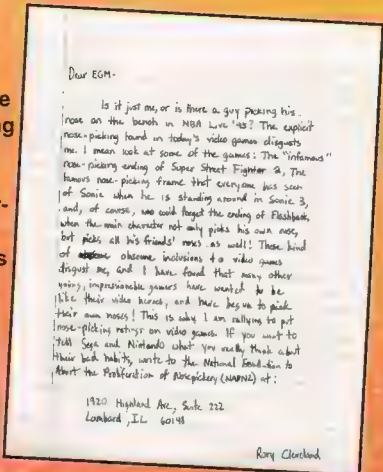 e
ng
-
s
Dear EGM-
Is it just me, or is there a guy picking his
nose on the bench in NBA Live '95? The explicit
nose-picking found in today's video games disgusts
me. I mean look at some of the games: The "infamous"
nose-picking ending of Super Street Fighter 2, The
famous nose-picking frame that everyone has seen
of Sonic when he is standing around in Sonic 3,
and, of course, who could forget the ending of Flashback,
when the main character not only picks his own nose,
but picks all his friends' noses as well! These kind
of obscene inclusions to video games
disgust me, and I have found that many other
young, impressionable gamers have wanted to be
like their video heroes, and have begun to pick
their own noses! This is why I am rallying to put
nose-picking ratings on video games. If you want to
tell Sega and Nintendo what you really think about
their bad habits, write to the National Foundation to
Abort the Proliferation of Nosepickery (NAPNZ) at:
1920 Highland Ave, Suite 222
Lombard, IL 60148
Rory Cleveland